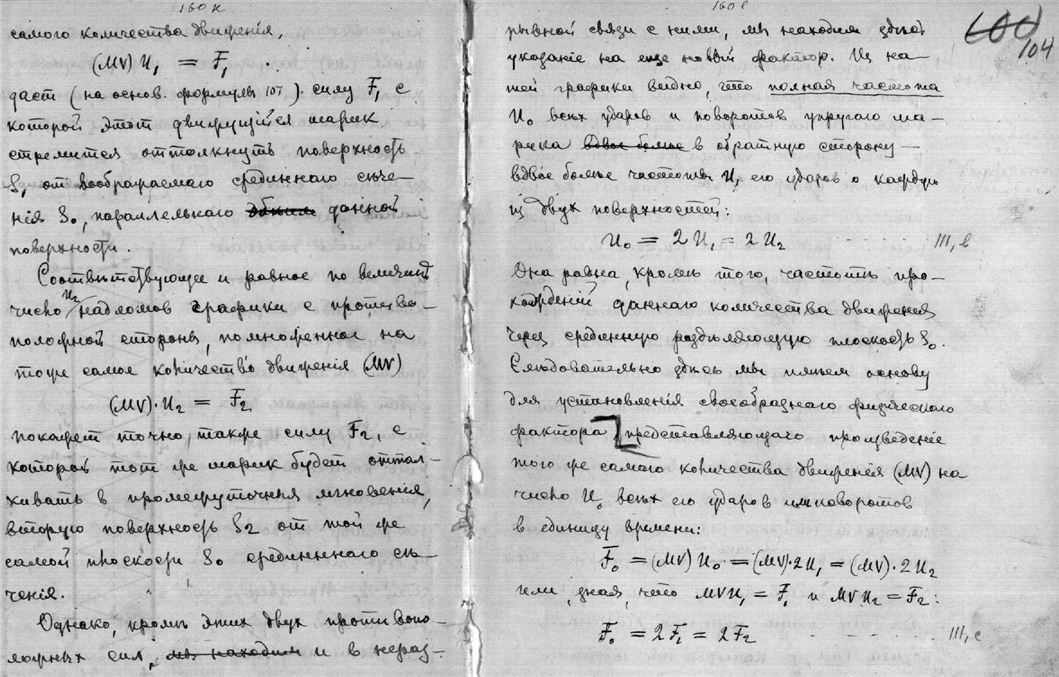 160 к
самого количества движенія,
(MV) n₁ = F₁
даст (на основ. формулы 101) силу F₁ с
которой этот движущійся шарик
стремится оттолкнуть поверхность
S₁ от воображаемаго срединнаго сѣче-
нія S₀, параллельнаго данной
поверхности.
Соотвѣтствующее и равное по величинѣ
число n₂ надломов графики с противо-
положной стороны, помноженное на
тоже самое количество движенія (MV)
(MV)·n₂ = F₂
покажет точно также силу F₂, с
которой тот же шарик будет оттал-
кивать в промежуточныя мгновенія,
вторую поверхность S₂ от той же
самой плоскости S₀ срединнаго сѣ-
ченія.
Однако, кромѣ этих двух противопо-
ложных сил, мы находим и в нераз-
160 l
600
104
рывной связи с ними, мы находим здѣсь
указаніе на еще новый фактор. Из на-
шей графики видно, что полная частота
n₀ всѣх ударов и поворотов упругаго ша-
рика вдвое болѣе в обратную сторону—
вдвое больше частоты n₁ его ударов о каждую
из двух поверхностей:
n₀ = 2n₁ = 2n₂ III, b
Она равна, кромѣ того, частотѣ про-
хожденій даннаго количества движенія
через срединную раздѣляющую плоскость S₀.
Слѣдовательно здѣсь мы имѣем основу
для установленія своеобразнаго физическаго
фактора, представляющаго произведеніе
того же самаго количества движенія (MV) на
число n₀ всѣх его ударов или поворотов
в единицу времени:
F₀ = (MV) n₀ = (MV)·2n₁ = (MV)·2n₂
или, зная, что MVn₁ = F₁ и MVn₂ = F₂:
F₀ = 2F₁ = 2F₂ III, c